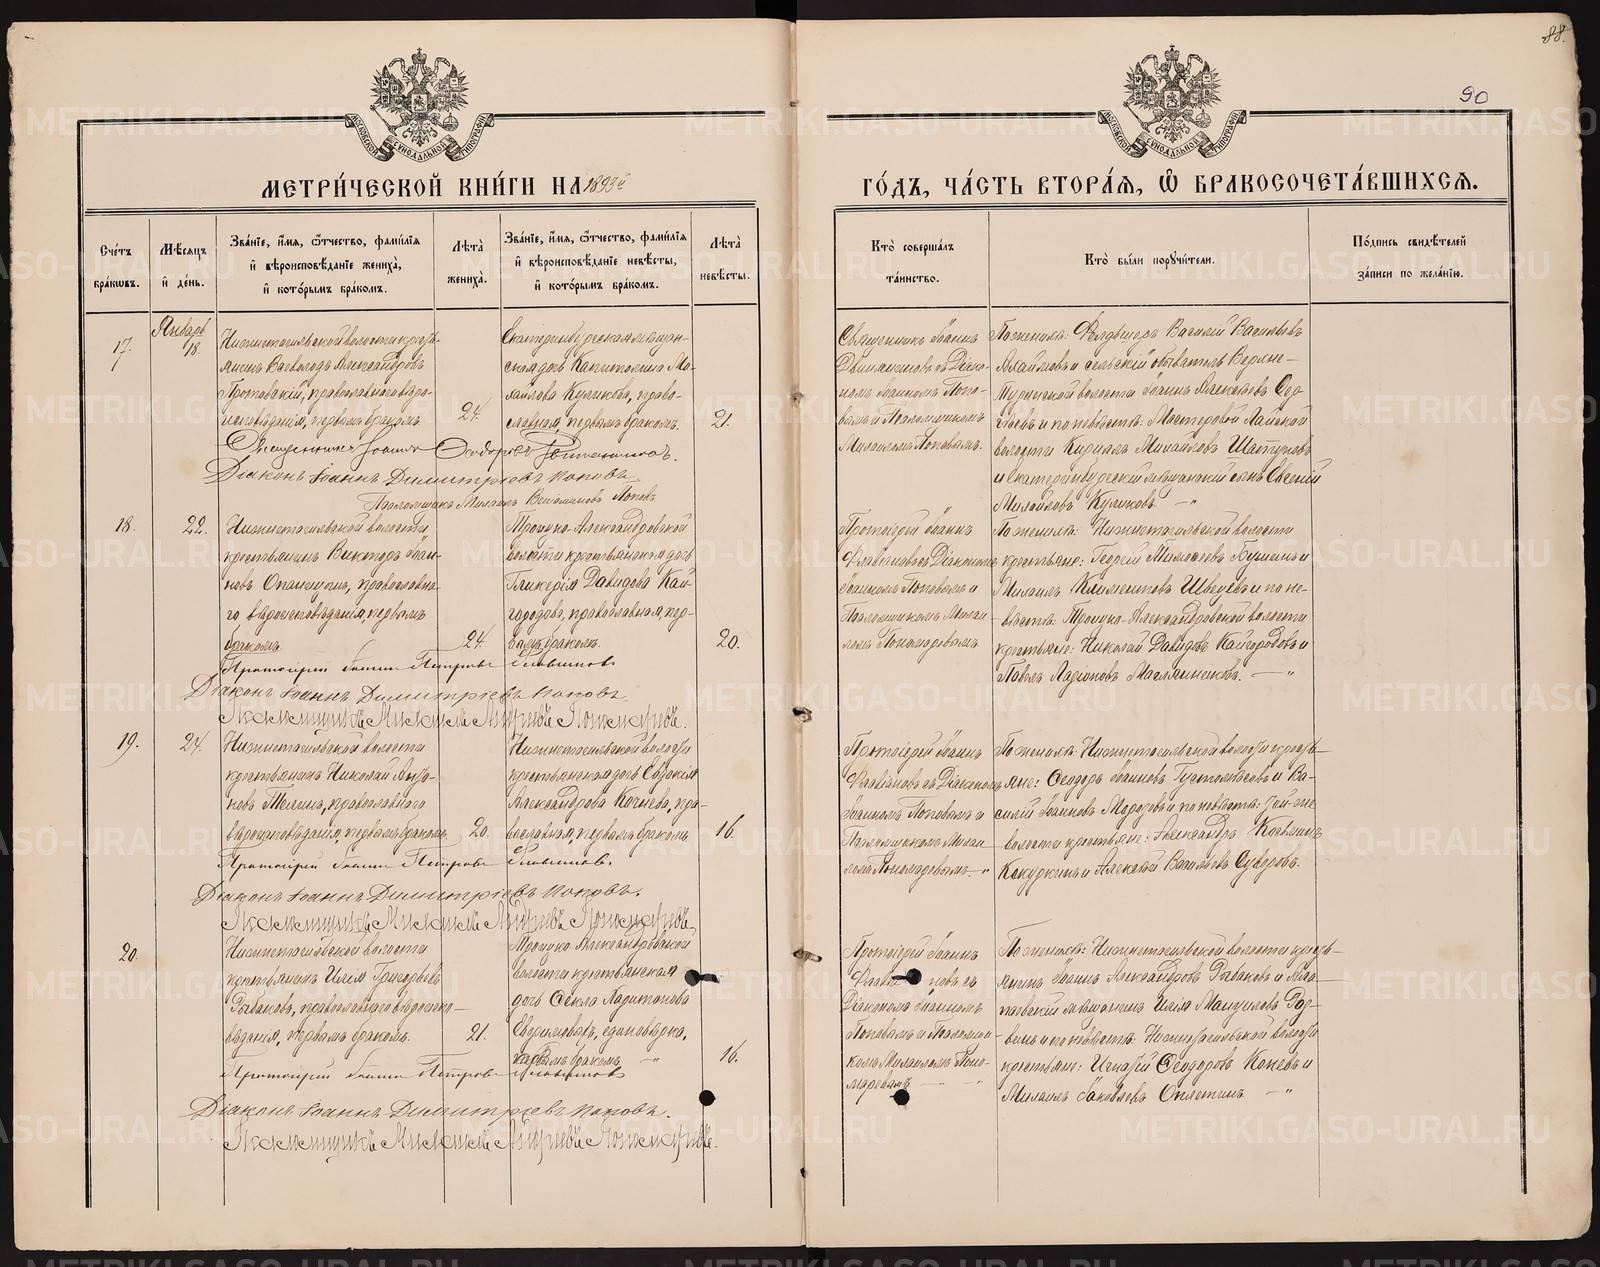 88.
90
МЕТРИ́ЧЕСКОЙ КНИ́ГИ НА 1893й
ГО́ДЪ, ЧА́СТЬ ВТОРА́Я, Ѡ҆ БРАКОСОЧЕТА́ВШИХСЯ.
МОСКОВСКОЙ СѴНОДАЛЬНОЙ ТИПОГРАФІИ
МОСКОВСКОЙ СѴНОДАЛЬНОЙ ТИПОГРАФІИ
Сче́тъ бра́кѡвъ.
Мѣ́сяцъ и҆ де́нь.
Зва́нїе, и҆́мя, ѻ҆́тчество, фами́лїя и҆ вѣроисповѣ́данїе жениха̀, и҆ кото́рымъ бра́комъ.
Лѣ́та̀ жениха̀.
Зва́нїе, и҆́мя, ѻ҆́тчество, фами́лїя и҆ вѣроисповѣ́данїе невѣ́сты, и҆ кото́рымъ бра́комъ.
Лѣ́та̀ невѣ́сты.
Кто̀ соверша́лъ та́инство.
Кто̀ бы́ли поручи́тели.
По́дпись свидѣ́телей за́писи по жела́нїю.
17.
Январь
18.
Нижнетагильской волости кресть-
янинъ Всеволодъ Александровъ
православнаго вѣро-
исповѣданія, первымъ бракомъ
24.
Екатеринбургская мѣщан-
ская дочь Капитолина Ми-
хайлова Куликова, право-
славная, первымъ бракомъ.
21.
Священникъ Іоаннъ
съ Діако-
номъ Іоанномъ Попо-
вымъ и Псаломщикомъ
Михаиломъ Поповымъ.
По женихѣ: Фельдшеръ Василій Васильевъ
и сельскій обыватель Верхне-
Туринской волости Іоаннъ Алексѣевъ
и по невѣстѣ: Мастеровой Лайской
волости Кириллъ Михайловъ
и Екатеринбургскій мѣщанскій сынъ Евгеній
Михайловъ Куликовъ. —"
Священникъ Іоаннъ Ѳеодоровъ
Діаконъ Іоаннъ Димитріевъ Поповъ
Псаломщикъ Михаилъ Поповъ
18.
22.
Нижнетагильской волости
крестьянинъ Викторъ Іоан-
новъ православна-
го вѣроисповѣданія, первымъ
бракомъ.
24.
Троицко-Александровской
волости крестьянская дочь
Гликерія Давидова Кай-
городова, православная, пер-
вымъ бракомъ.
20.
Протоіерей Іоаннъ
Флавіановъ съ Діакономъ
Іоанномъ Поповымъ и
Псаломщикомъ Михаи-
ломъ Пономаревымъ.
По женихѣ: Нижнетагильской волости
крестьяне: и
Михаилъ Климентовъ и по не-
вѣстѣ: Троицко-Александровской волости
крестьяне: Николай Давидовъ Кайгородовъ и
Павелъ Ларіоновъ Масленниковъ. —"
Протоіерей Іоаннъ Петровъ Флавіановъ
Діаконъ Іоаннъ Димитріевъ Поповъ.
Псаломщикъ Михаилъ Андреевъ Пономаревъ.
19.
24.
Нижнетагильской волости
крестьянинъ Николай
новъ православнаго
вѣроисповѣданія, первымъ бракомъ.
20.
Нижнетагильской волости
крестьянская дочь Евдокія
Александрова пра-
вославная, первымъ бракомъ.
16.
Протоіерей Іоаннъ
Флавіановъ съ Діакономъ
Іоанномъ Поповымъ и
Псаломщикомъ Михаи-
ломъ Пономаревымъ. —"
По женихѣ: Нижнетагильской волости кресть-
яне: Ѳеодоръ Іоанновъ и Ва-
силій Іоанновъ Морозовъ и по невѣстѣ: той-же
волости крестьяне: Александръ
и Алексѣй Васильевъ Суворовъ.
Протоіерей Іоаннъ Петровъ Флавіановъ.
Діаконъ Іоаннъ Димитріевъ Поповъ.
Псаломщикъ Михаилъ Андреевъ Пономаревъ.
20.
Нижнетагильской волости
крестьянинъ Илія Григорьевъ
Рыбаковъ, православнаго вѣроиспо-
вѣданія, первымъ бракомъ.
21.
Троицко-Александровской
волости крестьянская
дочь Ѳекла Харитонова
единовѣрка,
первымъ бракомъ. —"
16.
Протоіерей Іоаннъ
новъ съ
Діакономъ Іоанномъ
Поповымъ и Псаломщи-
комъ Михаиломъ Поно-
маревымъ —
По женихѣ: Нижнетагильской волости кресть-
янинъ Іоаннъ Александровъ Рыбаковъ и
мѣщанинъ Илія
и по невѣстѣ: Нижнетагильской волости
крестьяне: Игнатій Ѳеодоровъ и
Михаилъ Іаковлевъ —"
Протоіерей Іоаннъ Петровъ Флавіановъ
Діаконъ Іоаннъ Димитріевъ Поповъ.
Псаломщикъ Михаилъ Андреевъ Пономаревъ.
METRIKI.GASO-URAL.RU